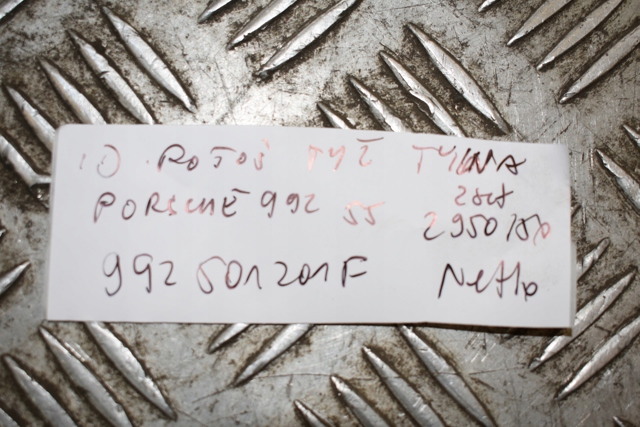 1) POŁOŚ TYŻ TYLNA
PORSCHE 992 SS 2szt
2950/szt
992 501 201 F Netto